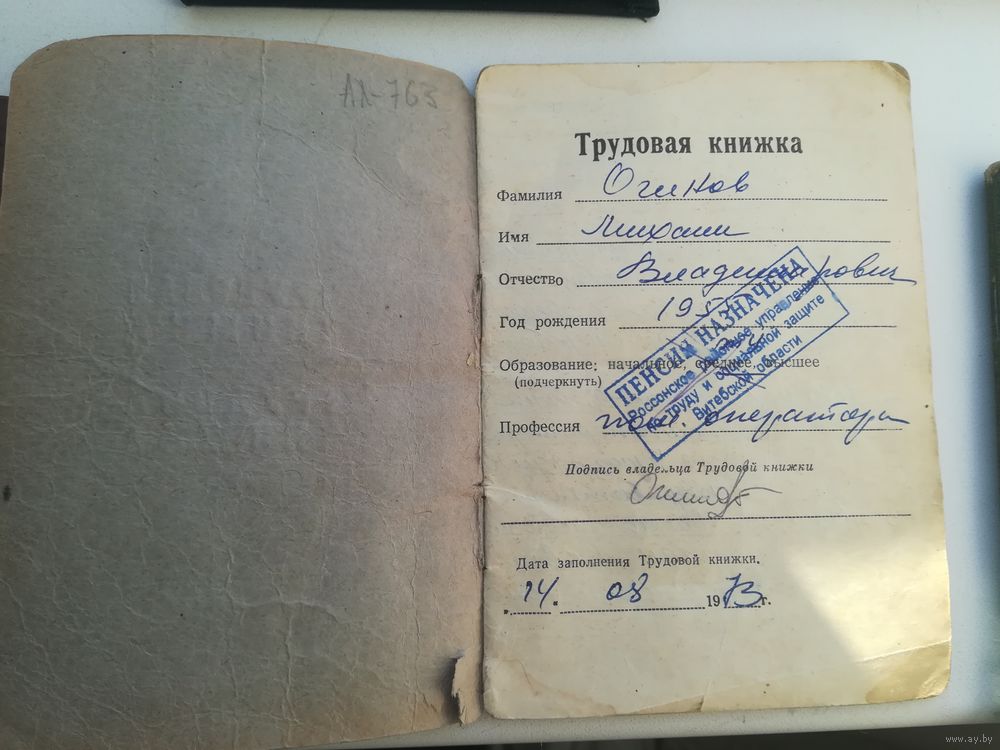 АЛ-763
Трудовая книжка
Фамилия Огинов
Имя Михаил
Отчество Владимирович
Год рождения 195
Образование: начальное, среднее, высшее
(подчеркнуть)
ПЕНСИЯ НАЗНАЧЕНА
Россонское районное управление
по труду и социальной защите
Витебской области
Профессия оператора
Подпись владельца Трудовой книжки
Дата заполнения Трудовой книжки.
14. 08 1973 г.
www.ay.by